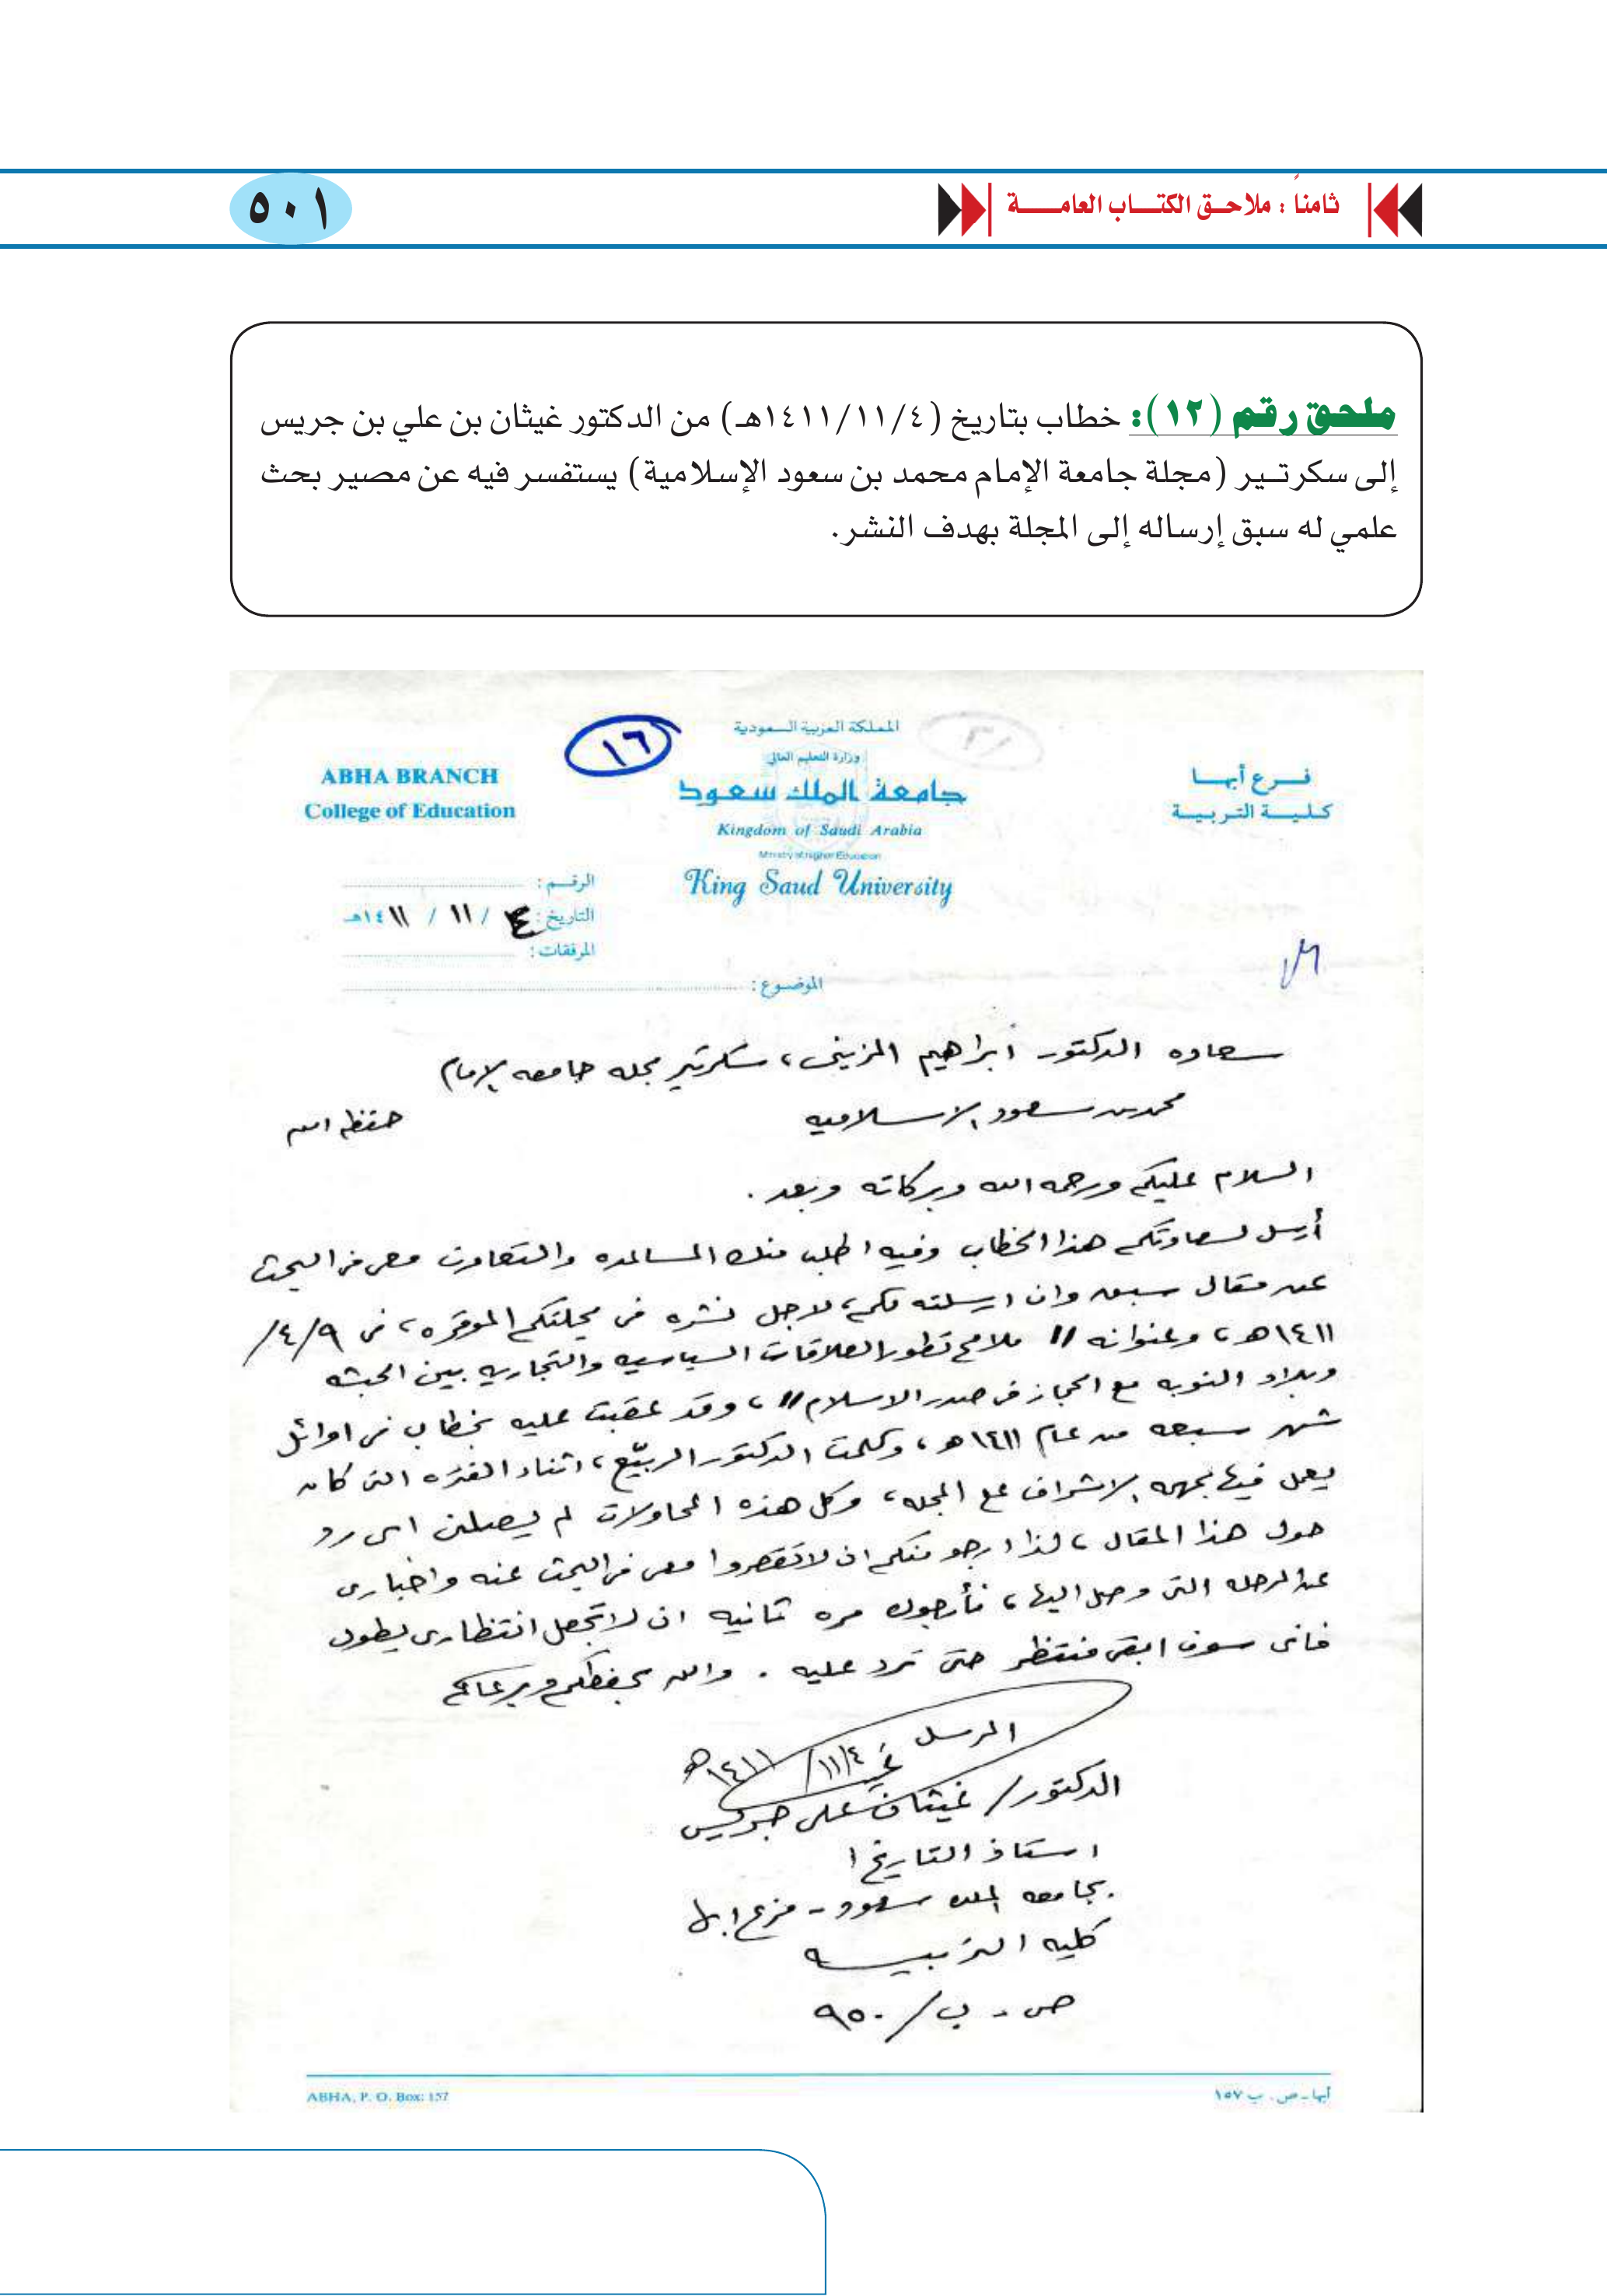 ثامناً : ملاحق الكتاب العامة
٥٠١
ملحق رقم (١٢): خطاب بتاريخ (١٤١١/١١/٤هـ) من الدكتور غيثان بن علي بن جريس
إلى سكرتير (مجلة جامعة الإمام محمد بن سعود الإسلامية) يستفسر فيه عن مصير بحث
علمي له سبق إرساله إلى المجلة بهدف النشر.
المملكة العربية السعودية
وزارة التعليم العالي
جامعة الملك سعود
Kingdom of Saudi Arabia
Ministry of Higher Education
King Saud University
فرع أبها
كلية التربية
١٦
ABHA BRANCH
College of Education
الرقم :
التاريخ : ٤ / ١١ / ١٤١١هـ
المرفقات :
الموضوع :
سعاده الدكتور ابراهيم المزيني، سكرتير مجله جامعه الامام
محمد بن سعود الاسلاميه
حفظه الله
السلام عليكم ورحمه الله وبركاته وبعد .
أرسل لسعادتكم هذا الخطاب وفيه اطلب منك المساعده والتعاون معي في البحث
عن مقال سبق وان ارسلته لكم، لاجل نشره في مجلتكم الموقره، في ٤/٩/
١٤١١هـ، وعنوانه // ملامح تطور العلاقات السياسيه والتجاريه بين الحبشه
وبلاد النوبه مع الحجاز في صدر الاسلام //، وقد عقبت عليه بخطاب في اوائل
شهر سبعه من عام ١٤١١هـ، وكلمت الدكتور الربيّع، اثناء الفتره التي كان
يعمل فيها بجهه الاشراف على المجله، وكل هذه المحاولات لم يصلني اي رد
حول هذا المقال، لذا ارجو منكم ان لا تقصروا معي في البحث عنه واخباري
عن المرحله التي وصل اليها، فأرجوك مره ثانيه ان لا تجعل انتظاري يطول
فاني سوف ابقى منتظر حتى ترد عليه . والله يحفظكم ويرعاكم
المرسل
١١/٤/ ١٤١١هـ
الدكتور/ غيثان علي جريس
استاذ التاريخ
بجامعه الملك سعود - فرع ابها
كليه التربيه
ص . ب/ ٩٥٠
ABHA, P. O. Box: 157
أبها - ص . ب ١٥٧